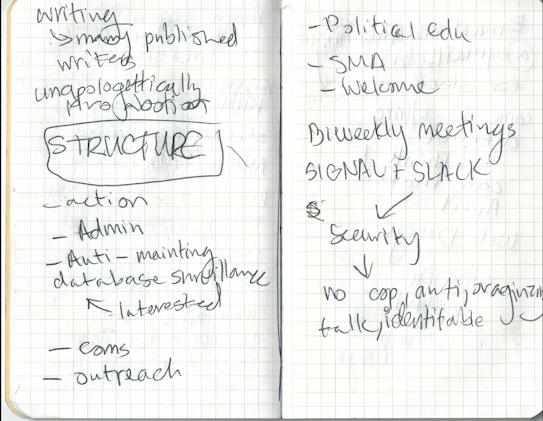 writing
↳ many published
writers
unapologettically
STRUCTURE
- action
- Admin
- Anti-mainting
database survillance
↖ Interested
- coms
- outreach
- Political edu
- SMA
- Welcome
Biweekly meetings
SIGNAL + SLACK
Security
no cop, anti,
talk, identifable